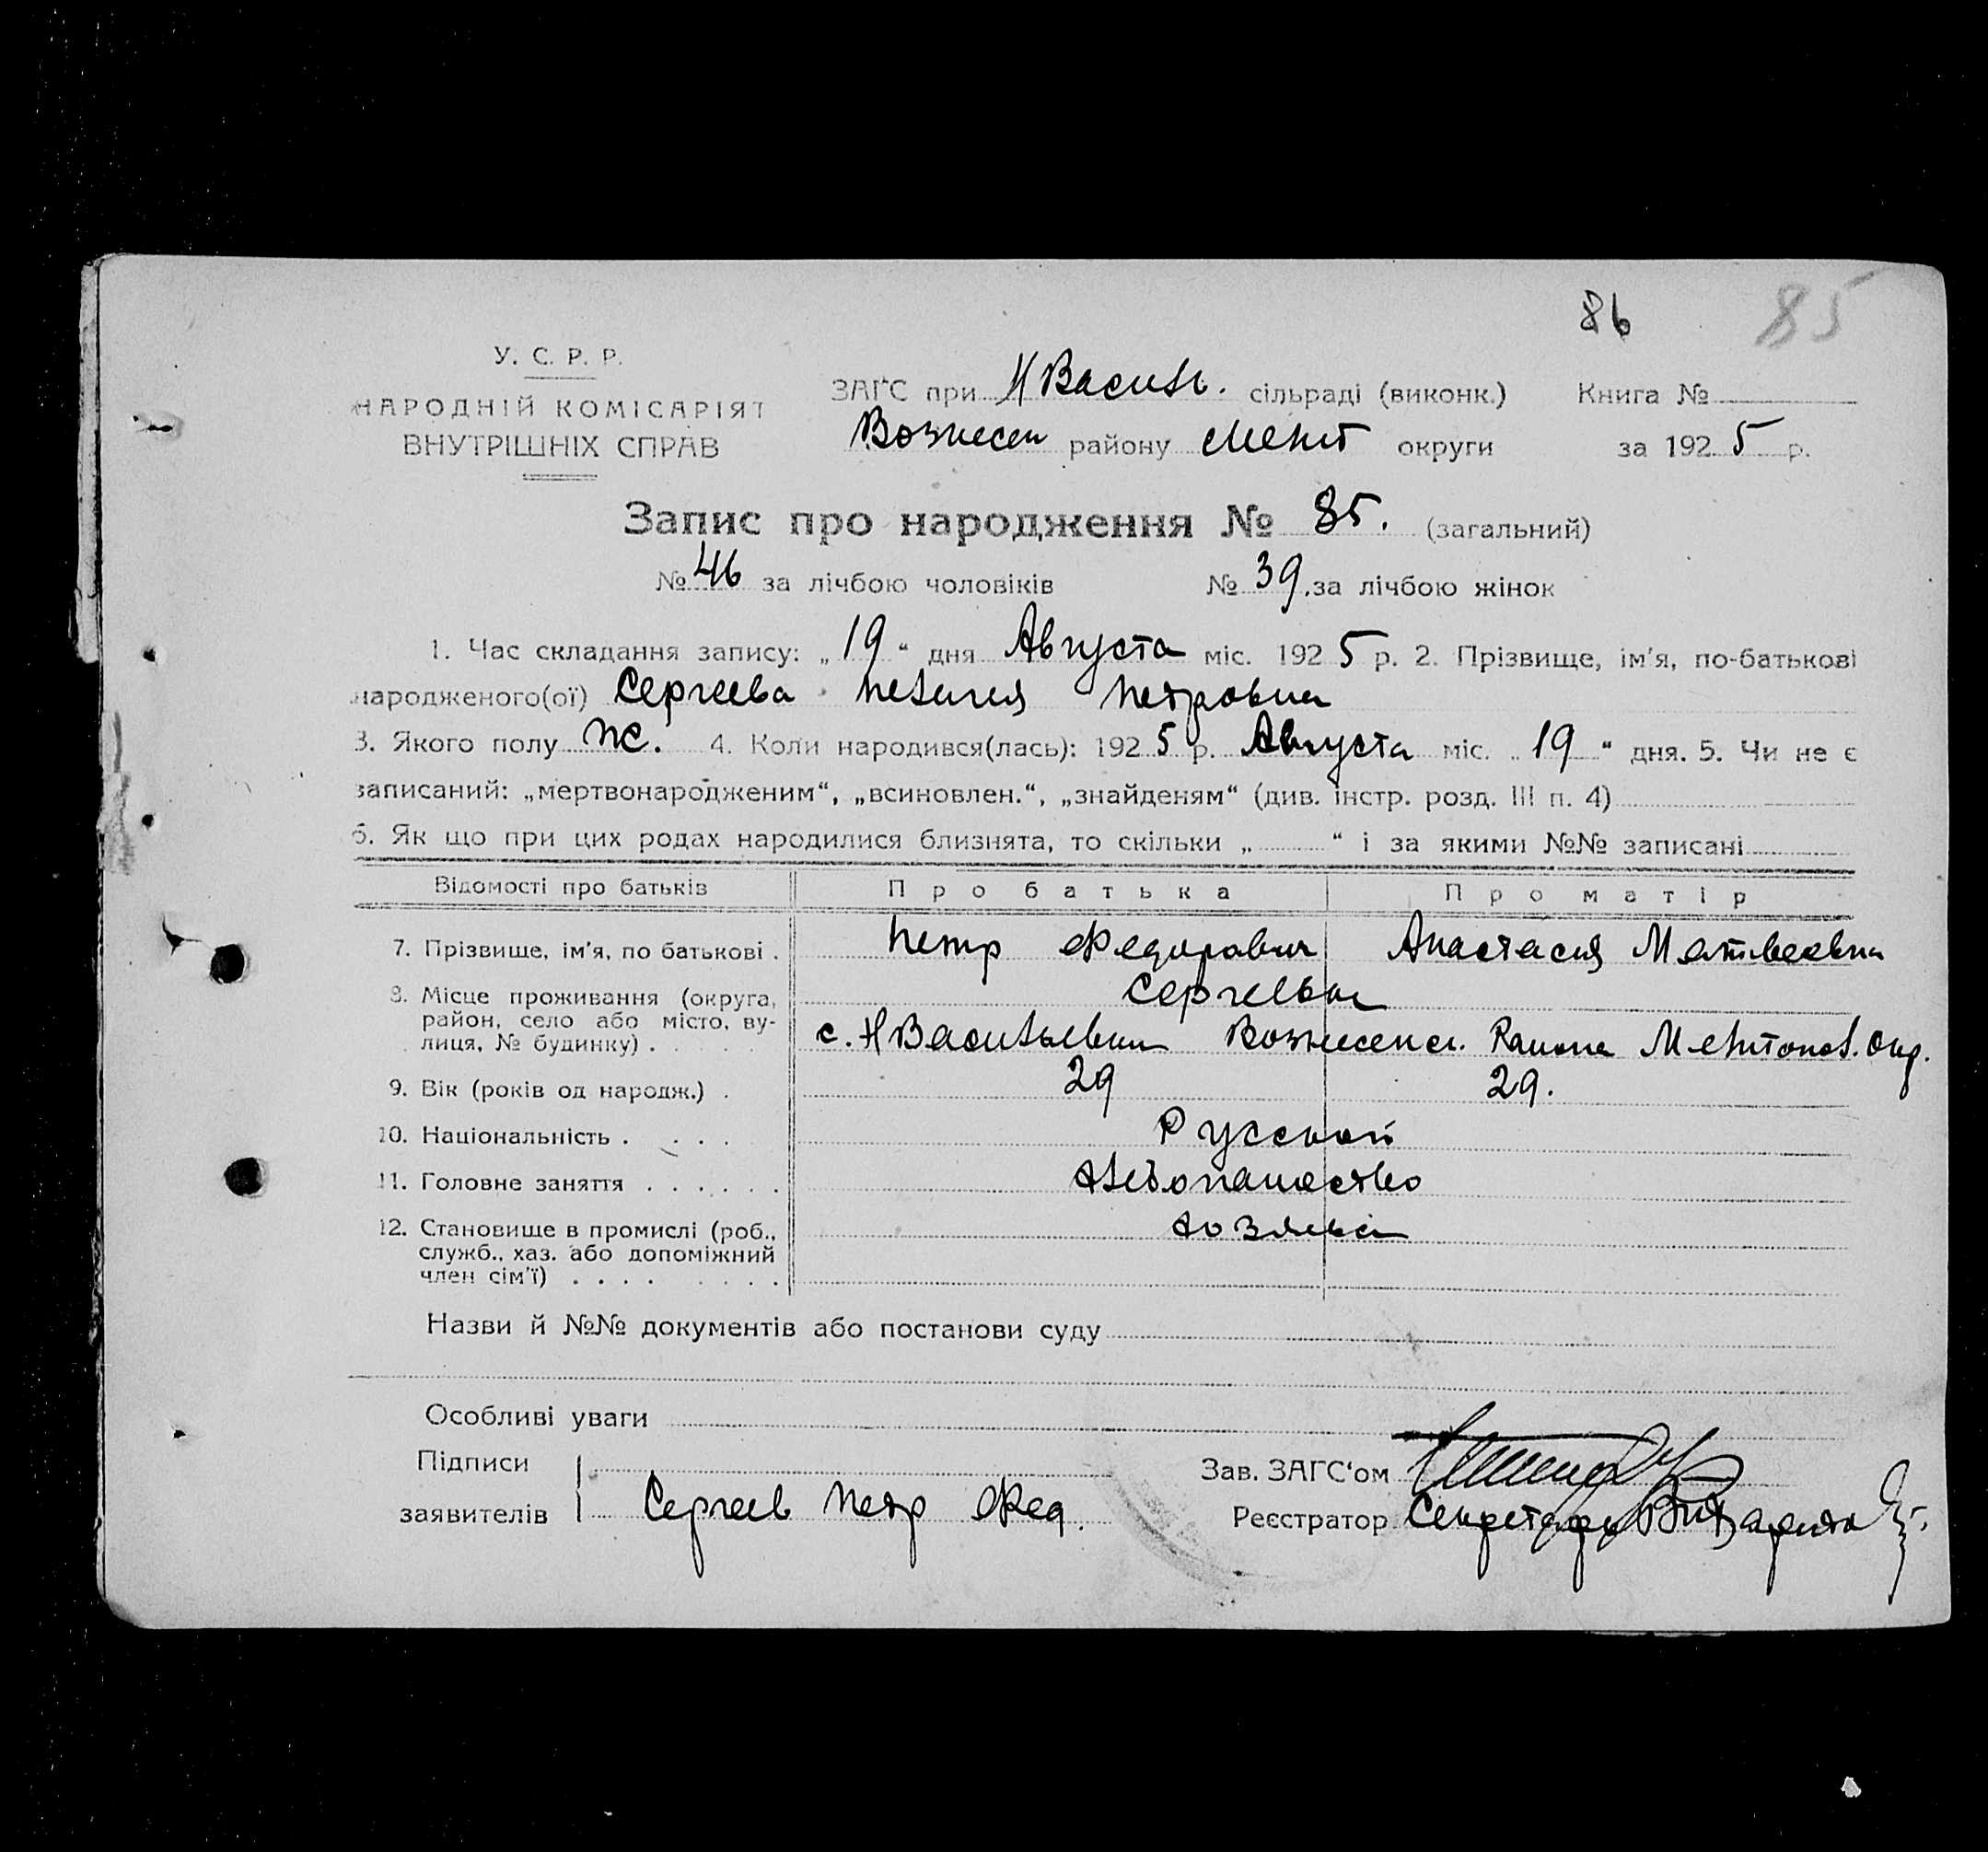 86 85
У. С. Р. Р.
НАРОДНІЙ КОМІСАРІЯТ
ВНУТРІШНІХ СПРАВ
ЗАҐС при Н Василь. сільраді (виконк.) Книга №
Вознесен району Меліт округи за 1925 р.
Запис про народження № 85. (загальний)
№ 46 за лічбою чоловіків № 39. за лічбою жінок
1. Час складання запису: „19“ дня Августа міс. 1925 р. 2. Прізвище, ім'я, по-батькові
народженого(ої) Сергеева Пелагия Петровна
3. Якого полу ж. 4. Коли народився(лась): 1925 р. Августа міс. „19“ дня. 5. Чи не є
записаний: „мертвонародженим“, „всиновлен.“, „знайденям“ (див. інстр. розд. III п. 4)
6. Як що при цих родах народилися близнята, то скільки „ “ і за якими №№ записані
Відомості про батьків Про батька Про матір
7. Прізвище, ім'я, по батькові . Петр Федорович Анастасия Матвеевна
Сергеевы
8. Місце проживання (округа,
район, село або місто, ву-
лиця, № будинку) . с. Н Васильевки Вознесенск. Района Мелитопол. Окр.
9. Вік (років од народж.) . 29 29.
10. Національність . . . . Русской
11. Головне заняття . . . . . . Хлебопашество
12. Становище в промислі (роб., хозяева
служб., хаз. або допоміжний
член сім'ї) . . . . . . . .
Назви й №№ документів або постанови суду
Особливі уваги
Підписи
заявителів Сергеев Петр Фед.
Зав. ЗАҐС'ом
Реєстратор Секретарь